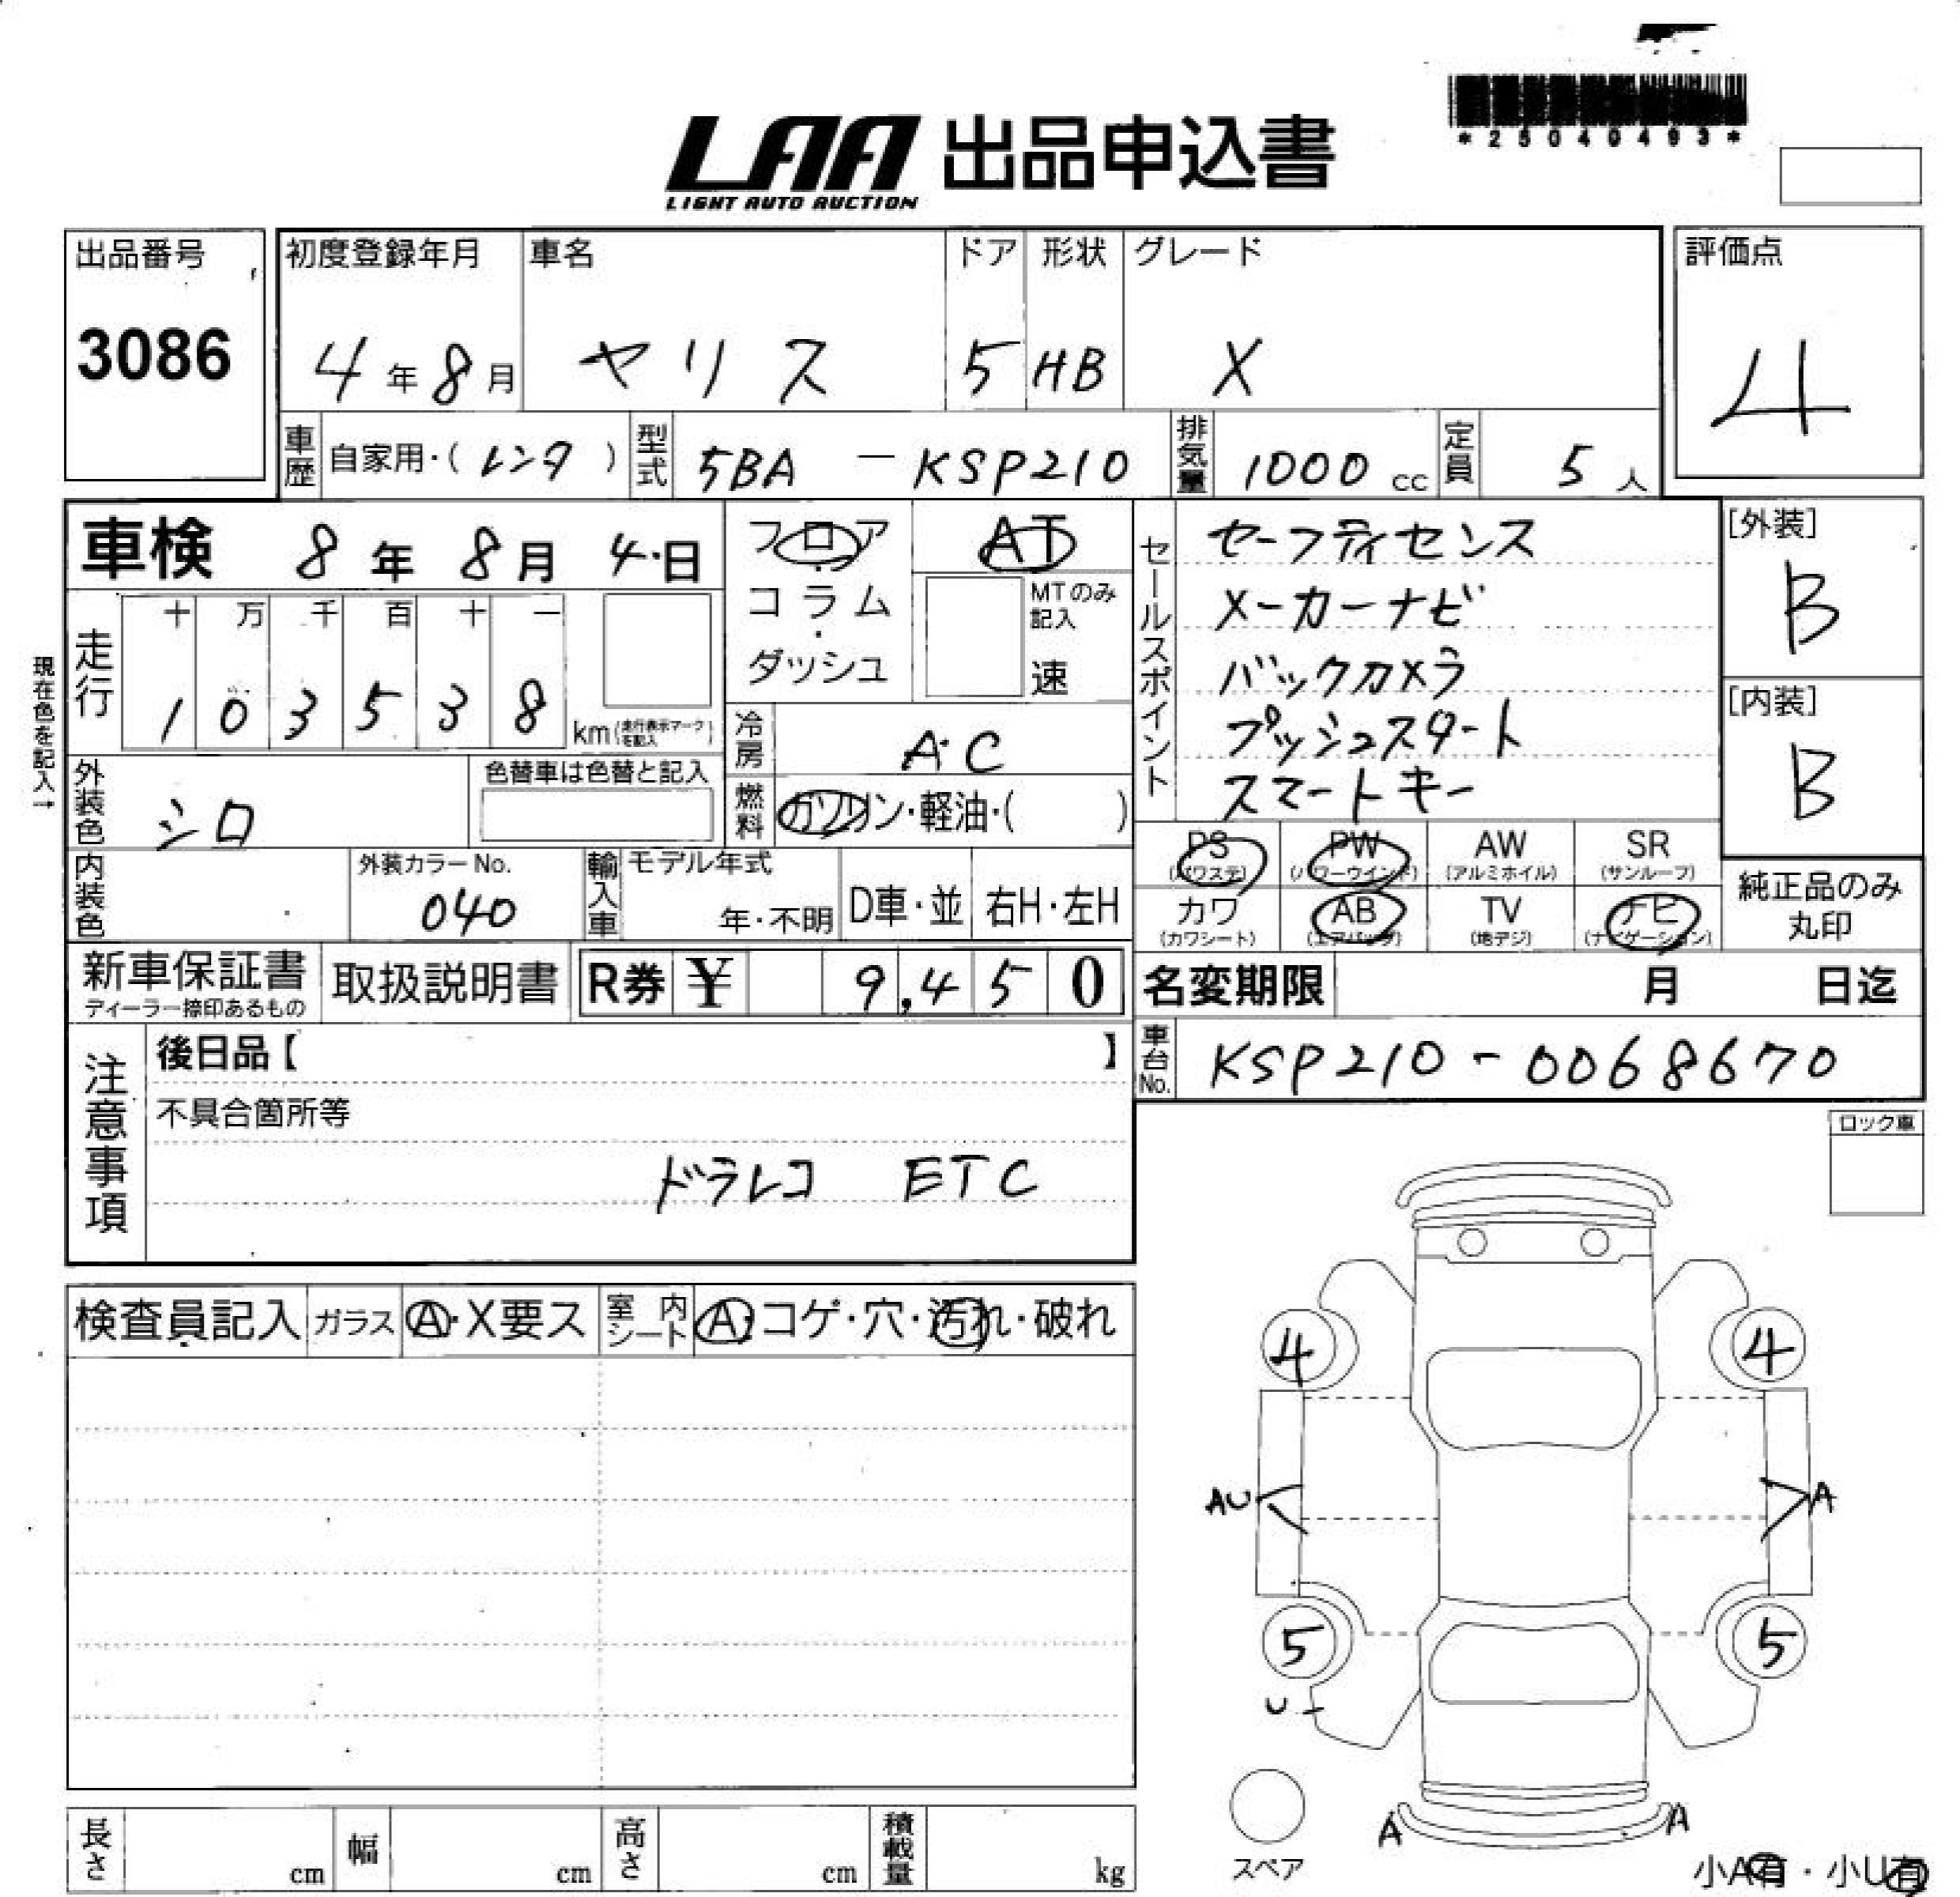 *25040493*
LAA 出品申込書
LIGHT AUTO AUCTION
出品番号 3086
初度登録年月 4年8月
車名 ヤリス
ドア 5
形状 HB
グレード X
評価点 4
車歴 自家用・(レンタ)
型式 5BA - KSP210
排気量 1000cc
定員 5人
車検 8年8月4日
フロア・コラム・ダッシュ
AT
MTのみ記入 速
セールスポイント
セーフティセンス
メーカーナビ
バックカメラ
プッシュスタート
スマートキー
[外装] B
[内装] B
現在色を記入→
走行 十万千百十一
103538 km(走行表示マークを記入)
冷房 A・C
外装色 シロ
色替車は色替と記入
燃料 ガソリン・軽油・( )
内装色
外装カラーNo. 040
輸入車 モデル年式 年・不明
D車・並
右H・左H
PS (パワステ)
PW (パワーウインド)
AW (アルミホイル)
SR (サンルーフ)
カワ (カワシート)
AB (エアバッグ)
TV (地デジ)
ナビ (ナビゲーション)
純正品のみ丸印
新車保証書 ディーラー捺印あるもの
取扱説明書
R券 ¥ 9,450
名変期限 月 日迄
車台No. KSP210-0068670
注意事項
後日品【 】
不具合箇所等
ドラレコ ETC
ロック車
検査員記入
ガラス A・X要ス
室内シート A・コゲ・穴・汚れ・破れ
4 4
AU A
5 5
U
A A
スペア
小A有・小U有
長さ cm
幅 cm
高さ cm
積載量 kg